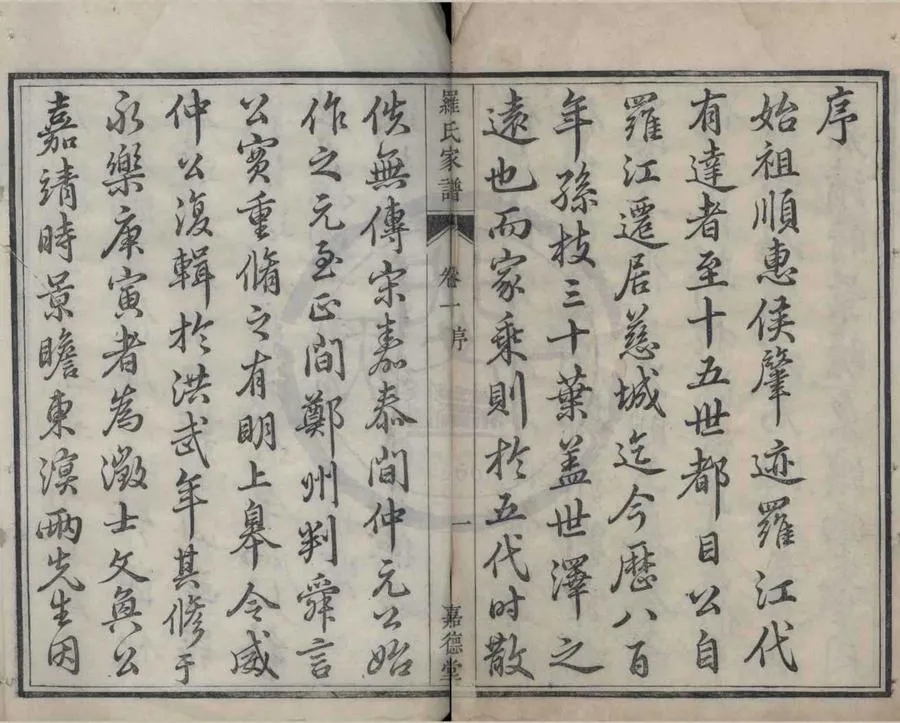 序
始祖順惠侯肇迹羅江代
有達者至十五世都目公自
羅江遷居慈城迄今歷八百
年孫枝三十葉蓋世澤之
遠也而家乘則於五代时散
羅氏家譜
卷一
序
一
嘉德堂
佚無傳宋嘉泰間仲元公始
作之元至正間鄭州判舜言
公實重脩之有明上皋令威
仲公復輯於洪武年其修于
永樂庚寅者為澂士文奐公
嘉靖時景瞻東溟兩先生因